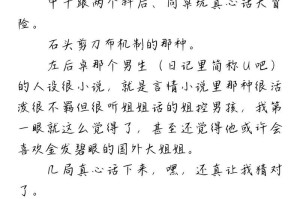 中午跟两个科后、同桌玩真心话大冒
险。
石头剪刀布机制的那种。
左后桌那个男生（日记里简称U吧）
的人设很小说，就是言情小说里那种很活
泼很不羁但很听姐姐话的姐控男孩，我第
一眼就这么觉得了，甚至还觉得他或许会
喜欢金发碧眼的国外大姐姐。
几局真心话下来，嘿，还真让我猜对
了。